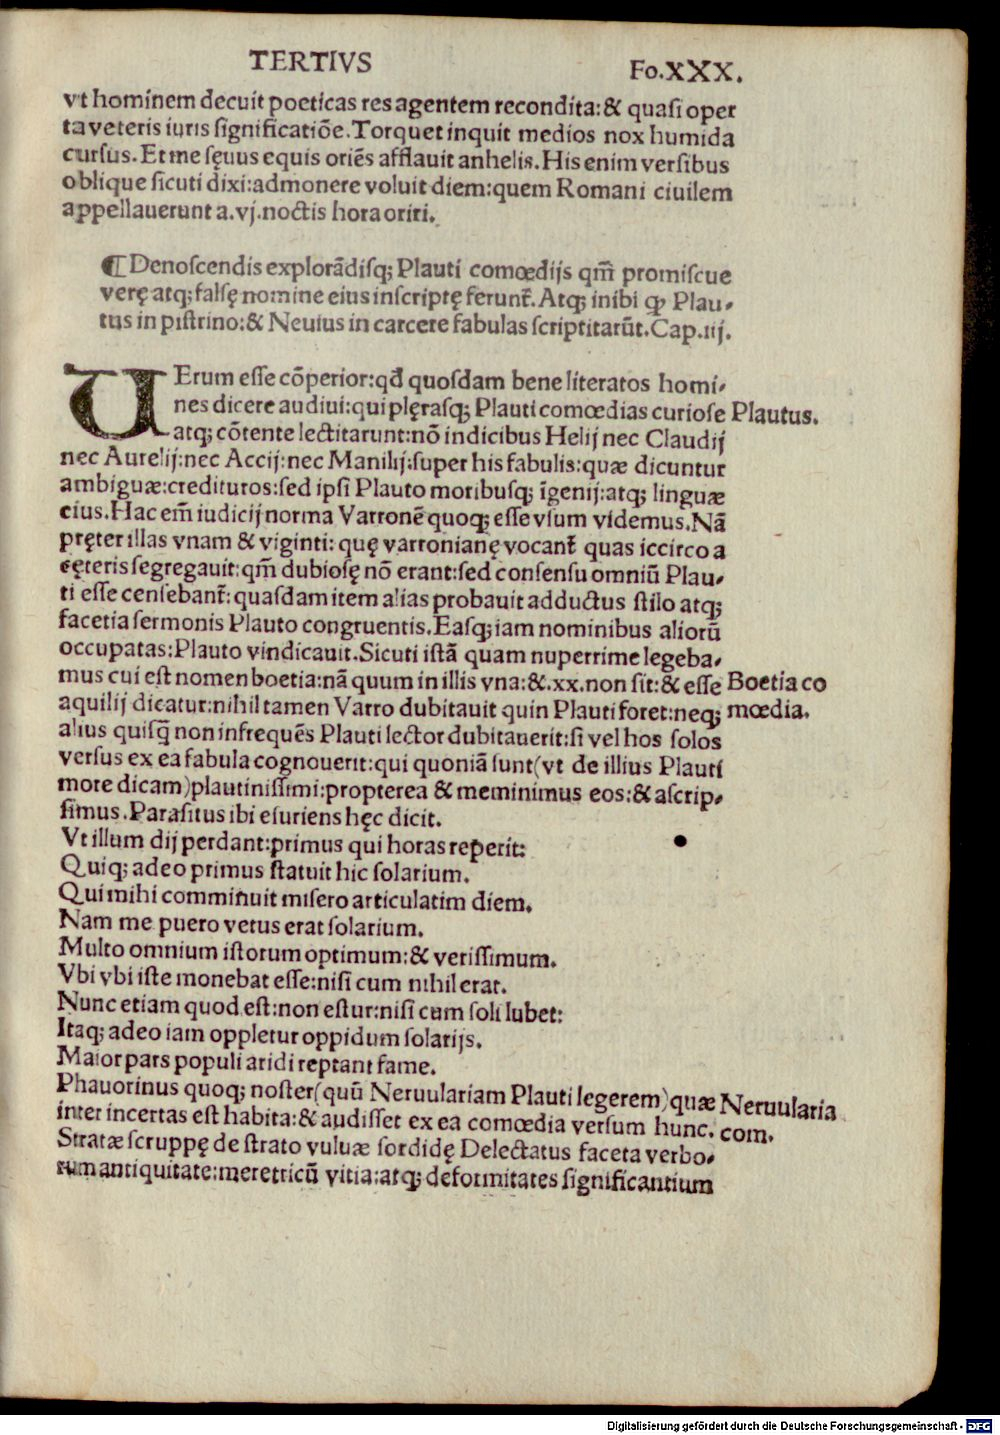 TERTIVS
Fo.XXX.
vt hominem decuit poeticas res agentem recondita:& quasi oper
ta veteris iuris significatiõe.Torquet inquit medios nox humida
cursus.Et me sęuus equis oriẽs afflauit anhelis.His enim versibus
oblique sicuti dixi:admonere voluit diem:quem Romani ciuilem
appellauerunt a.vj.noctis hora oriri.
¶Denoscendis explorãdisq; Plauti comœdijs qm̃ promiscue
verę atq; falsę nomine eius inscriptę ferunt̃.Atq; inibi ꝙ Plau-
tus in pistrino:& Neuius in carcere fabulas scriptitarũt.Cap.iij.
VErum esse cõperior:qđ quosdam bene literatos homi-
nes dicere audiui:qui plęrasq; Plauti comœdias curiose
Plautus.
atq; cõtente lectitarunt:nõ indicibus Helij nec Claudij
nec Aurelij:nec Accij:nec Manilij:super his fabulis:quæ dicuntur
ambiguæ:credituros:sed ipsi Plauto moribusq; ĩgenij:atq; linguæ
eius.Hac em̃ iudicij norma Varronẽ quoq; esse vsum videmus.Nã
pręter illas vnam & viginti: quę varronianę vocant̃ quas iccirco a
cęteris segregauit:qm̃ dubiosę nõ erant:sed consensu omniũ Plau-
ti esse censebant̃:quasdam item alias probauit adductus stilo atq;
facetia sermonis Plauto congruentis.Easq; iam nominibus aliorũ
occupatas:Plauto vindicauit.Sicuti istã quam nuperrime legeba-
mus cui est nomen boetia:nã quum in illis vna:&.xx.non sit:& esse
Boetia co
aquilij dicatur:nihil tamen Varro dubitauit quin Plauti foret:neq;
mœdia.
alius quisq̃ non infrequẽs Plauti lector dubitauerit:si vel hos solos
versus ex ea fabula cognouerit:qui quoniã sunt(vt de illius Plauti
more dicam)plautinissimi:propterea & meminimus eos:& ascrip-
simus.Parasitus ibi esuriens hęc dicit.
Vt illum dij perdant:primus qui horas reperit:
Quiq; adeo primus statuit hic solarium.
Qui mihi comminuit misero articulatim diem.
Nam me puero vetus erat solarium.
Multo omnium istorum optimum:& verissimum.
Vbi vbi iste monebat esse:nisi cum nihil erat.
Nunc etiam quod est:non estur:nisi cum soli lubet:
Itaq; adeo iam oppletur oppidum solarijs.
Maior pars populi aridi reptant fame.
Phauorinus quoq; noster(quũ Neruulariam Plauti legerem)quæ
Neruularia
inter incertas est habita:& audisset ex ea comœdia versum hunc.
com.
Stratæ scruppę de strato vuluæ sordidę Delectatus faceta verbo-
rum antiquitate:meretricũ vitia:atq; deformitates significantium
Digitalisierung gefördert durch die Deutsche Forschungsgemeinschaft - DFG